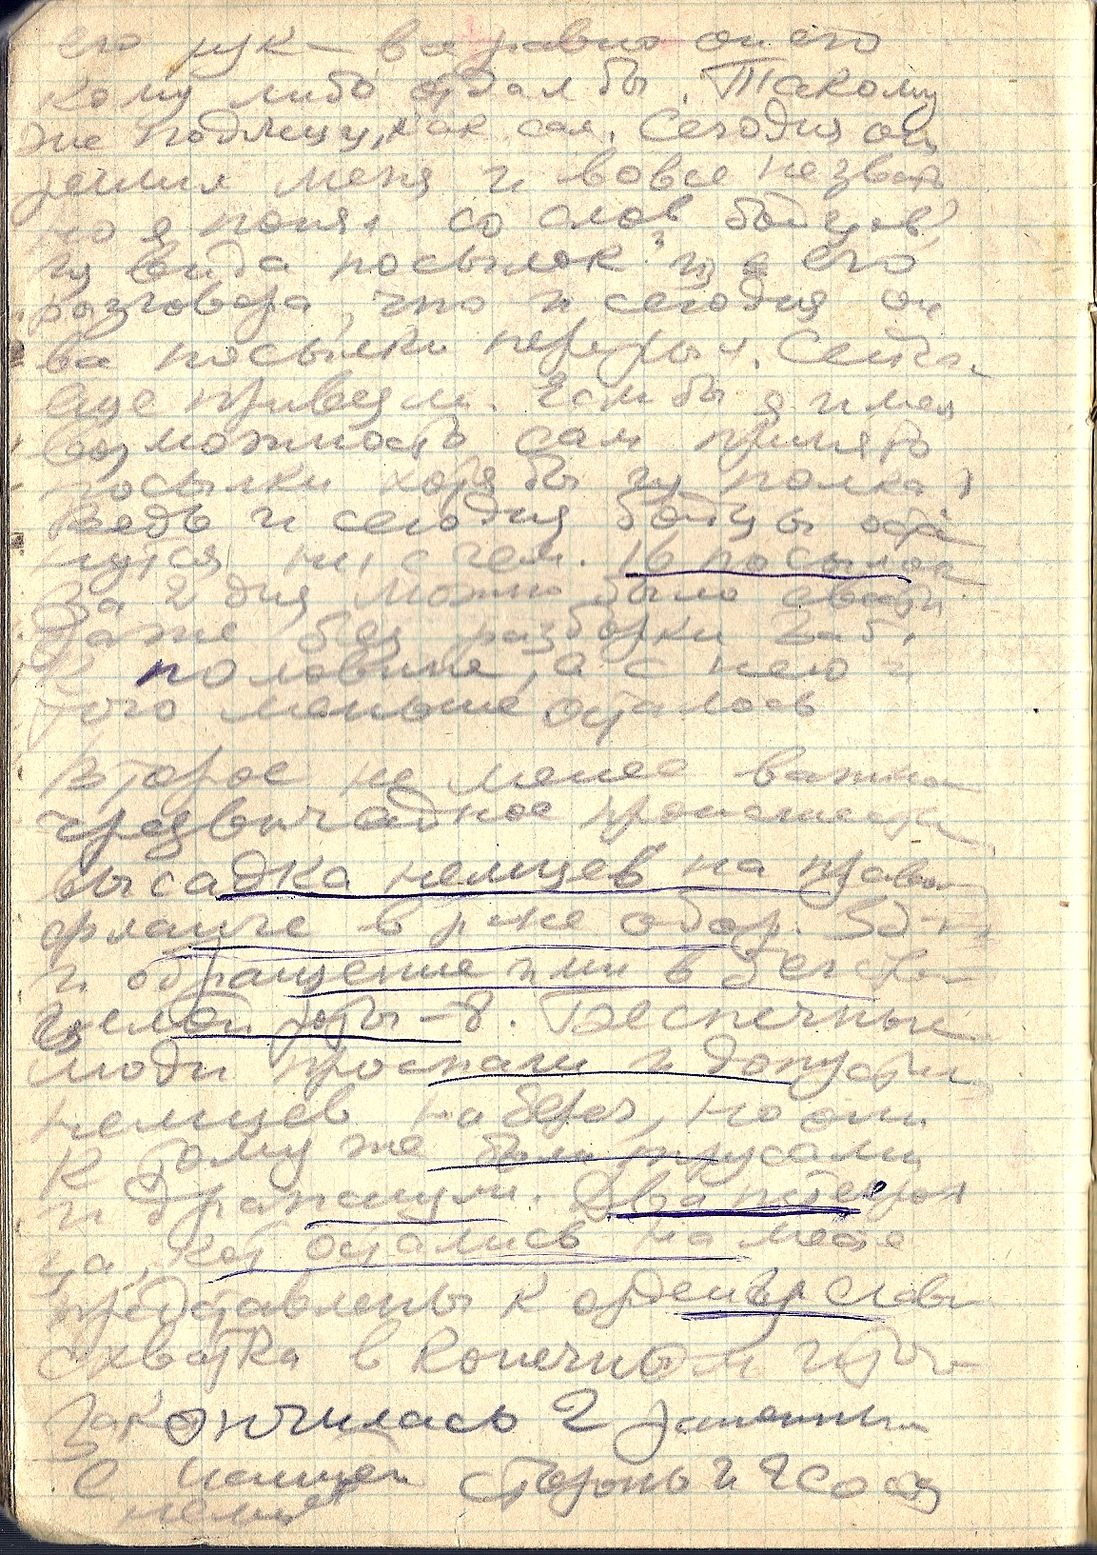 его рук - все равно он его
кому либо отдал бы. Такому
же подлецу, как сам. Сегодня он
решил меня и вовсе не звать
но я понял со слов бойцов,
из вида посылок и из его
разговора, что и сегодня он
посылки
еще привезли. Если бы я имел
возможность сам принять
посылки хотя бы из полка,
Ведь и сегодня бойцы оста
нутся ни с чем. 16 посылок
За 2 дня можно было
даже без разборки
К половине, а с нею и
того меньше осталось
Второе не менее важно
чрезвычайное происшеств
высадка немцев на правом
фланге в р-не обор.
и обращение ими в бегство
целой роты - 8. Беспечные
люди проспали и допустил
немцев на берег, но они
К тому же были трусами
и драпанули. Два
ца, кот остались на месте
представлены к орденам Славы
схватка в конечном итоге
Закончилась 2 ранеными
С нашей стороны и 2
немце